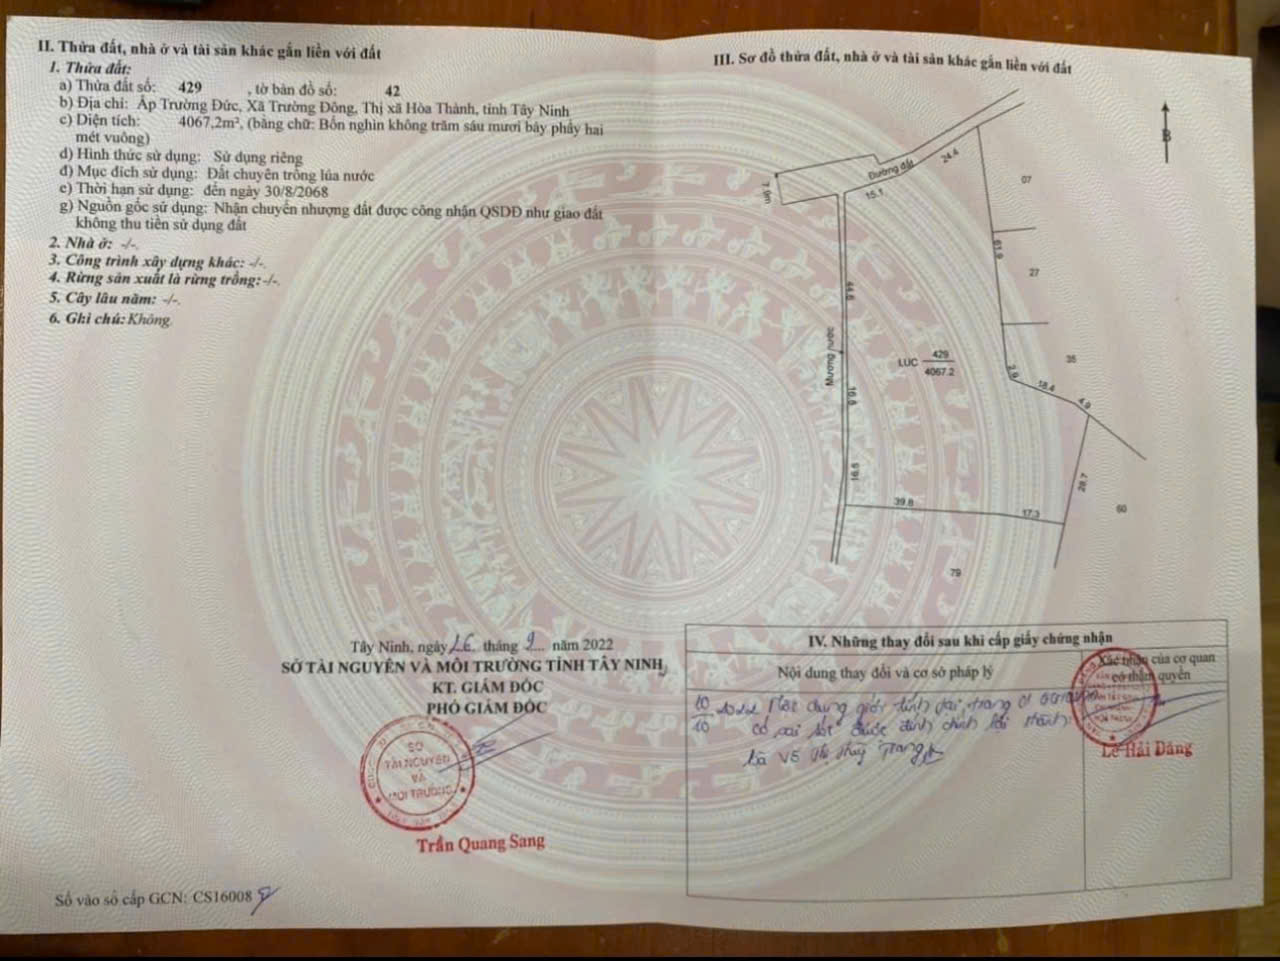 II. Thửa đất, nhà ở và tài sản khác gắn liền với đất
1. Thửa đất:
a) Thửa đất số: 429 , tờ bản đồ số: 42
b) Địa chỉ: Ấp Trường Đức, Xã Trường Đông, Thị xã Hòa Thành, tỉnh Tây Ninh
c) Diện tích: 4067,2m², (bằng chữ: Bốn nghìn không trăm sáu mươi bảy phẩy hai
mét vuông)
d) Hình thức sử dụng: Sử dụng riêng
đ) Mục đích sử dụng: Đất chuyên trồng lúa nước
e) Thời hạn sử dụng: đến ngày 30/8/2068
g) Nguồn gốc sử dụng: Nhận chuyển nhượng đất được công nhận QSDĐ như giao đất
không thu tiền sử dụng đất
2. Nhà ở: -/-.
3. Công trình xây dựng khác: -/-.
4. Rừng sản xuất là rừng trồng: -/-.
5. Cây lâu năm: -/-.
6. Ghi chú: Không.
Tây Ninh, ngày 26 tháng 9 năm 2022
SỞ TÀI NGUYÊN VÀ MÔI TRƯỜNG TỈNH TÂY NINH
KT. GIÁM ĐỐC
PHÓ GIÁM ĐỐC
SỞ
TÀI NGUYÊN
VÀ
MÔI TRƯỜNG
Trần Quang Sang
Số vào sổ cấp GCN: CS16008
III. Sơ đồ thửa đất, nhà ở và tài sản khác gắn liền với đất
B
7.0m
Đường đất
15.1
24.4
07
61.9
27
44.6
Mương nước
LUC 429
4067.2
35
2.9
18.4
4.9
16.8
16.5
28.7
39.8
17.3
60
79
IV. Những thay đổi sau khi cấp giấy chứng nhận
Nội dung thay đổi và cơ sở pháp lý
Xác nhận của cơ quan
có thẩm quyền
có sai sót được đính chính lại thành:
bà Võ Thị Thùy Trang
Lê Hải Đăng